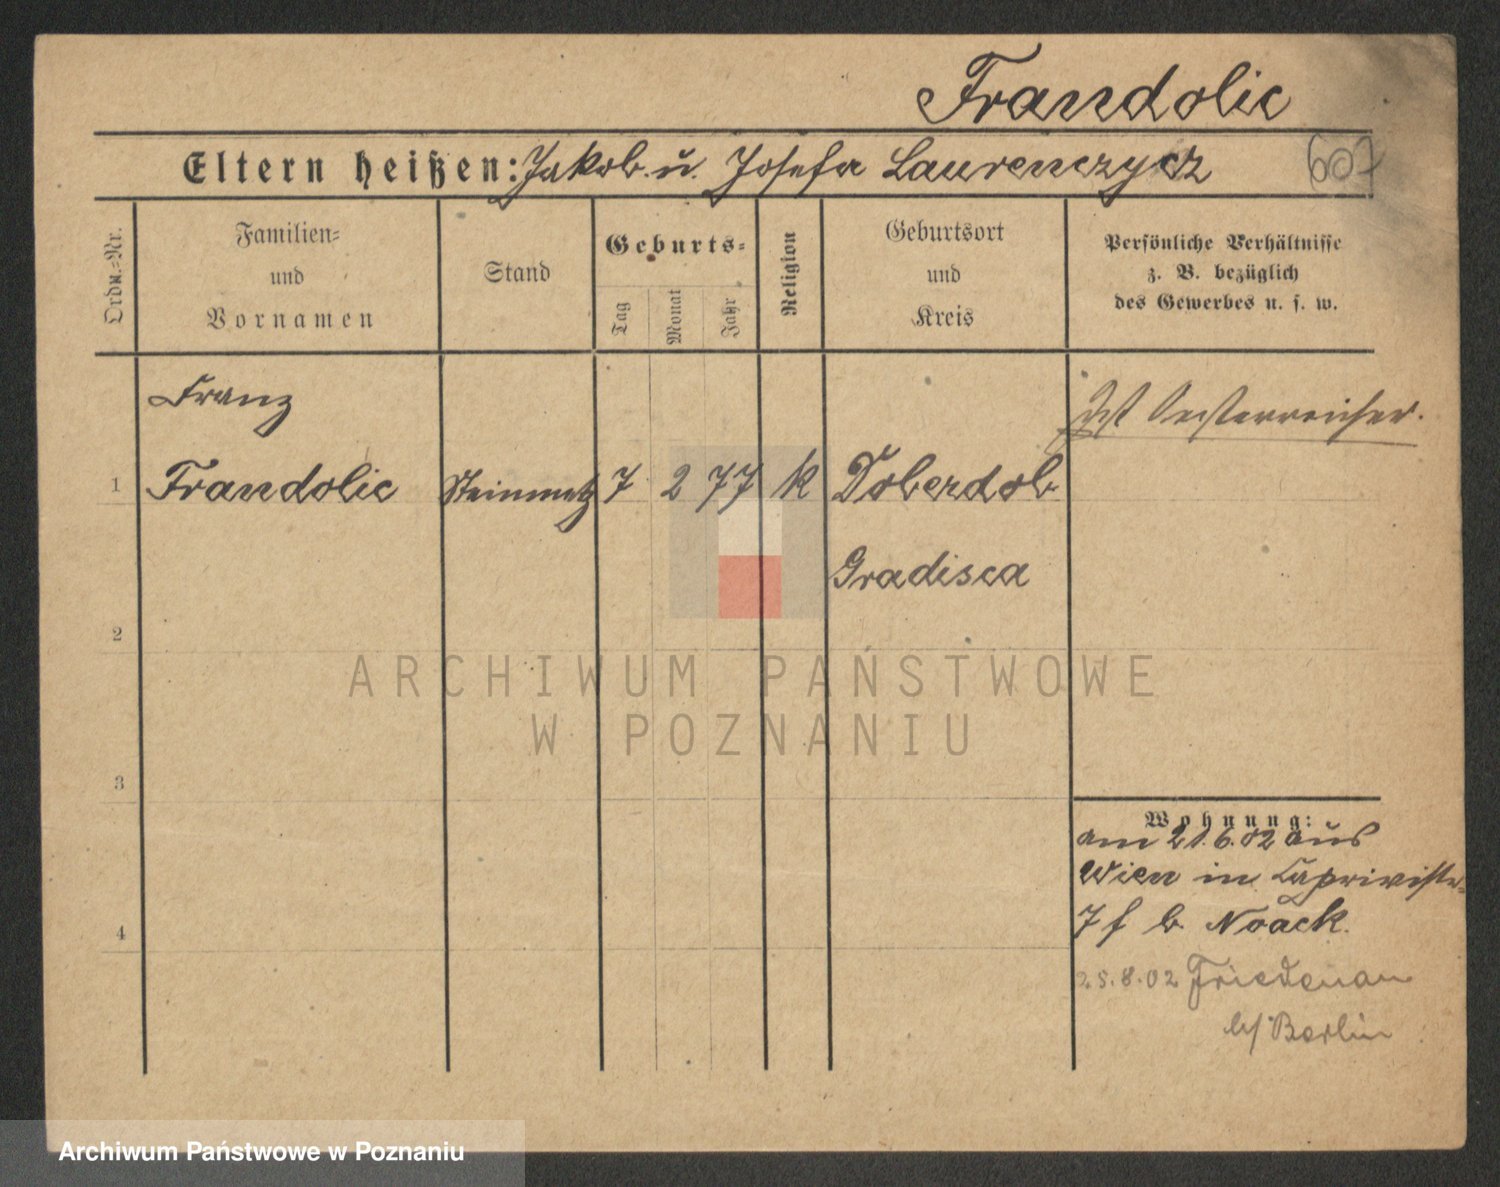 Frandolic
Eltern heißen: Jakob u. Josefa Laurenczycz
607
Ordn.=Nr.
Familien=
und
Vornamen
Stand
Geburts=
Tag
Monat
Jahr
Religion
Geburtsort
und
Kreis
Persönliche Verhältnisse
z. B. bezüglich
des Gewerbes u. s. w.
Franz
Ist Oesterreicher.
1 Frandolic Steinmetz 7 2 77 k Doberdob
Gradisca
2
ARCHIWUM PAŃSTWOWE
W POZNANIU
3
Wohnung:
am 21.6.02 aus
Wien in Caprivistr.
7 f b Noack.
4
25.8.02 Friedenau
b/ Berlin
Archiwum Państwowe w Poznaniu